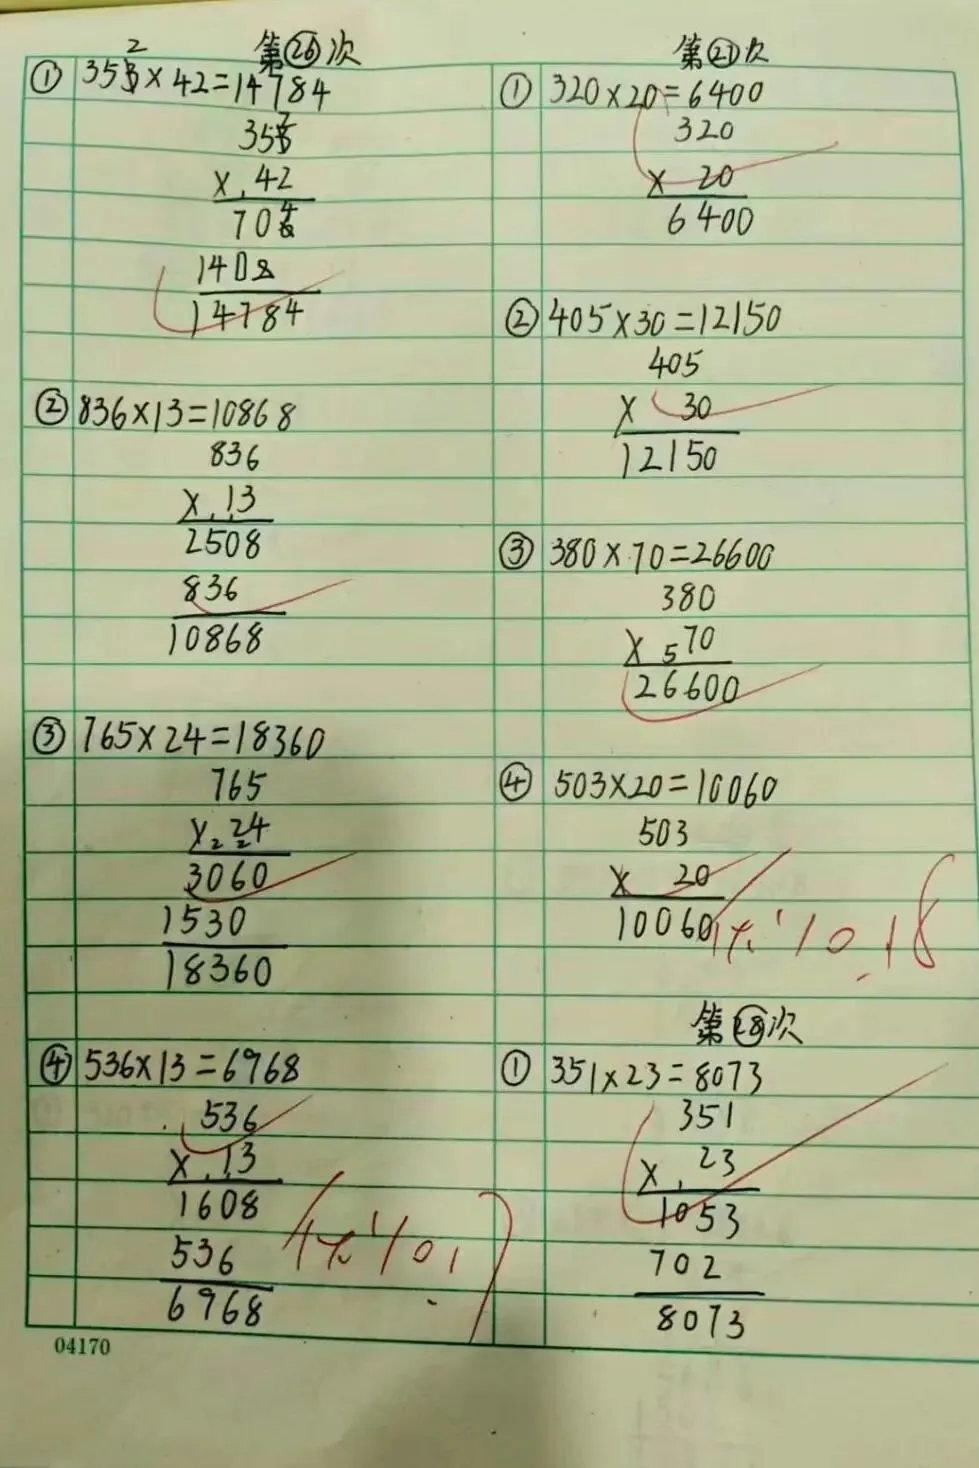 第26次
① 352×42=14784
352
× 42
704
1408
14784
② 836×13=10868
836
× 13
2508
836
10868
③ 765×24=18360
765
×2 242
3060
1530
18360
④ 536×13=6968
536
× 13
1608
536
6968
优 10.17
04170
第27次
① 320×20=6400
320
× 20
6400
② 405×30=12150
405
× 30
12150
③ 380×70=26600
380
× 5 70
26600
④ 503×20=10060
503
× 20
10060
优 10.18
第28次
① 351×23=8073
351
× 23
1053
702
8073